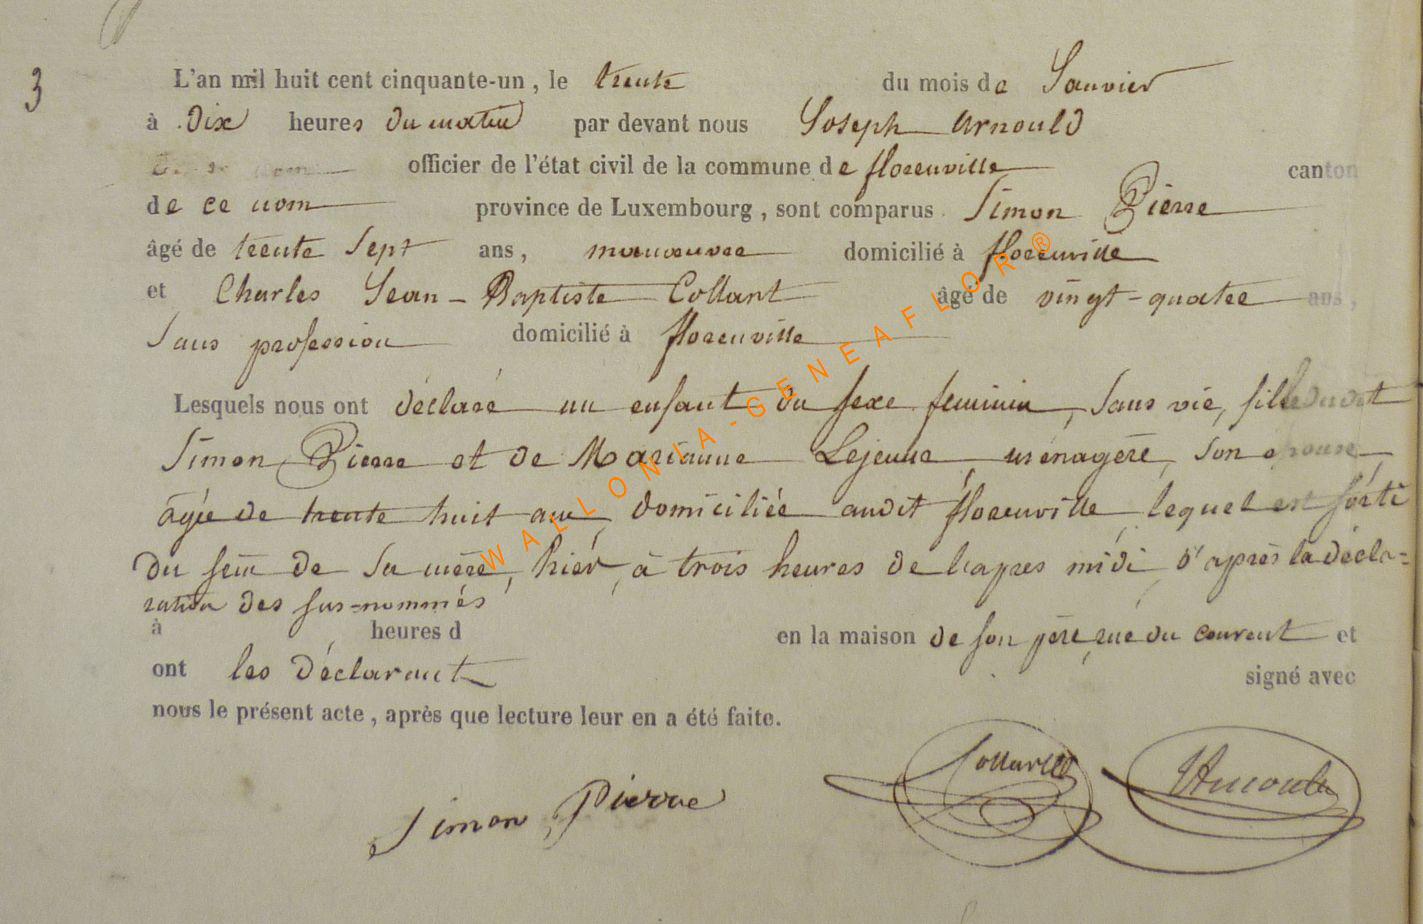 3
L'an mil huit cent cinquante-un, le trente du mois de Janvier
à Dix heures du matin par devant nous Joseph Arnould
officier de l'état civil de la commune de florenville canton
de ce nom province de Luxembourg, sont comparus Simon Pierre
âgé de trente Sept ans, manoeuvre domicilié à florenville
et Charles Jean-Baptiste Collart âgé de vingt-quatre ans,
Sans profession domicilié à florenville
Lesquels nous ont déclaré un enfant du sexe feminin, Sans vie, fille dudit
Simon Pierre et de Marianne Lejeune ménagère, son épouse
agée de trente huit ans, domiciliée audit florenville, lequel est sorti
du sein de sa mère, hier, à trois heures de l'apres midi, d'après la décla=
ration des sus-nommés
à heures d en la maison de son père, rue du courent et
ont les Déclarant signé avec
nous le présent acte, après que lecture leur en a été faite.
Simon Pierre Collart JArnould
WALLONIA-GENEAFLOR®